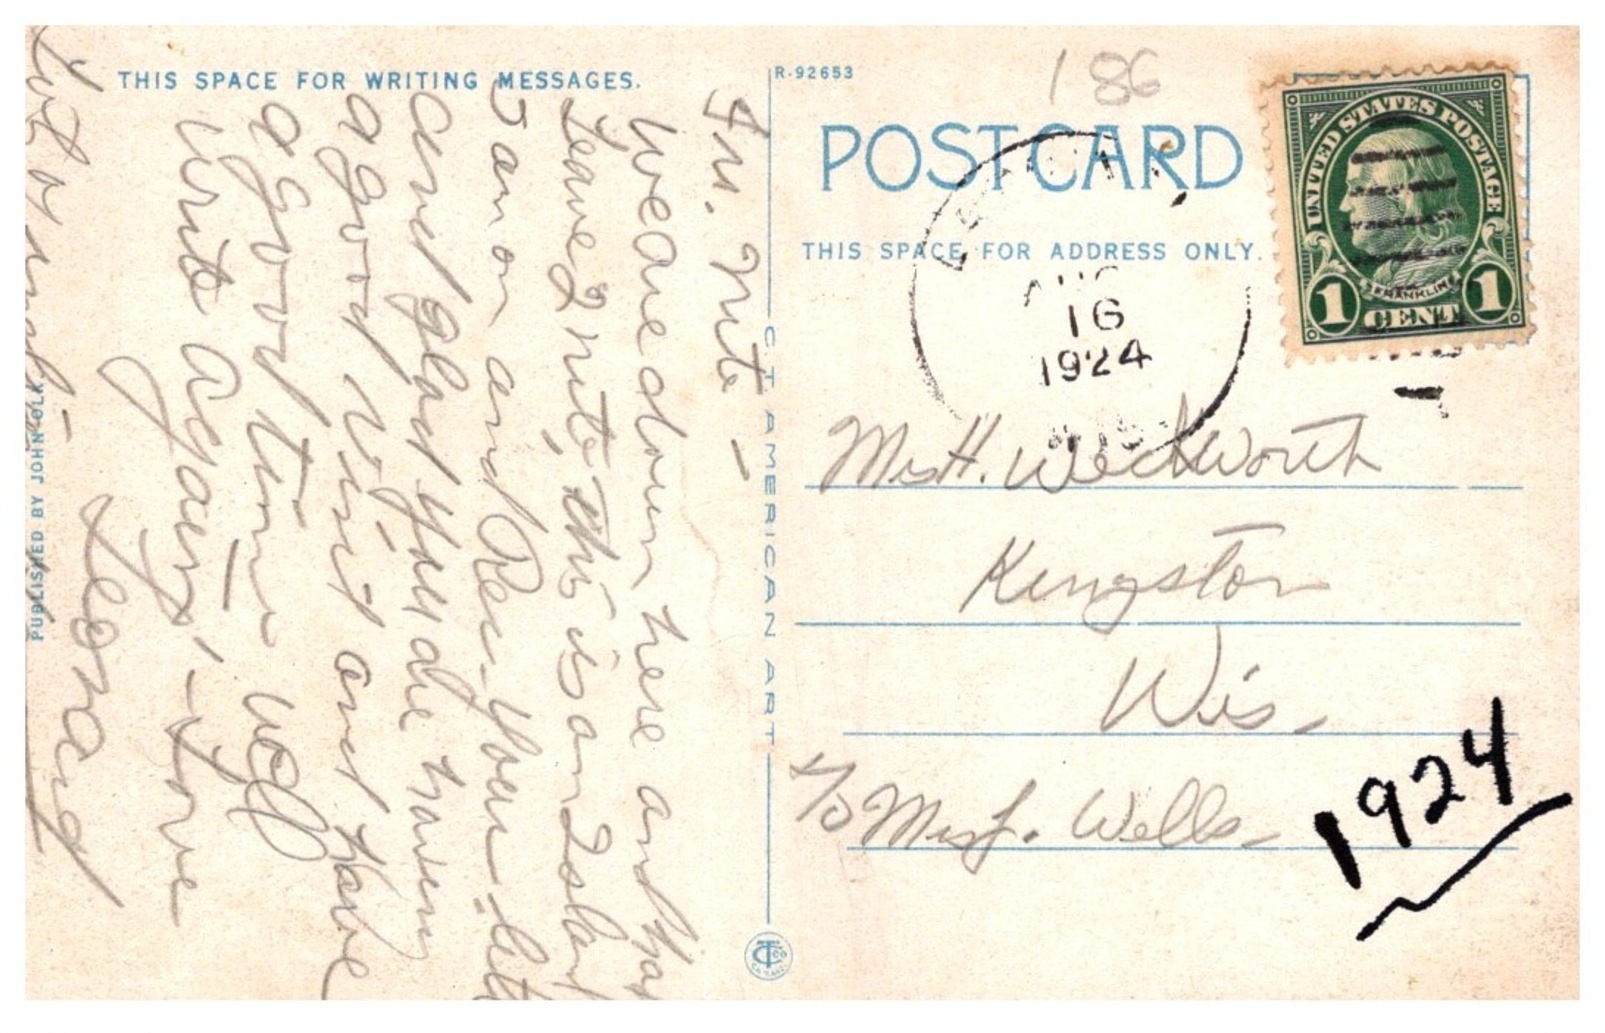 THIS SPACE FOR WRITING MESSAGES.
Fri. Nite -
We are down here and
Leave 2 nite this is an Island
I am on and Rec. your
and glad you are having
a good visit and have
a good time will
write again, - Love
Leona
PUBLISHED BY JOHN OLK
C T AMERICAN ART
R-92653
186
POST CARD
THIS SPACE FOR ADDRESS ONLY.
AUG
16
1924
WIS.
UNITED STATES POSTAGE
FRANKLIN
1 CENT 1
Mrs H. Weckworth
Kingston
Wis.
c/o Mrs J. Wells
1924